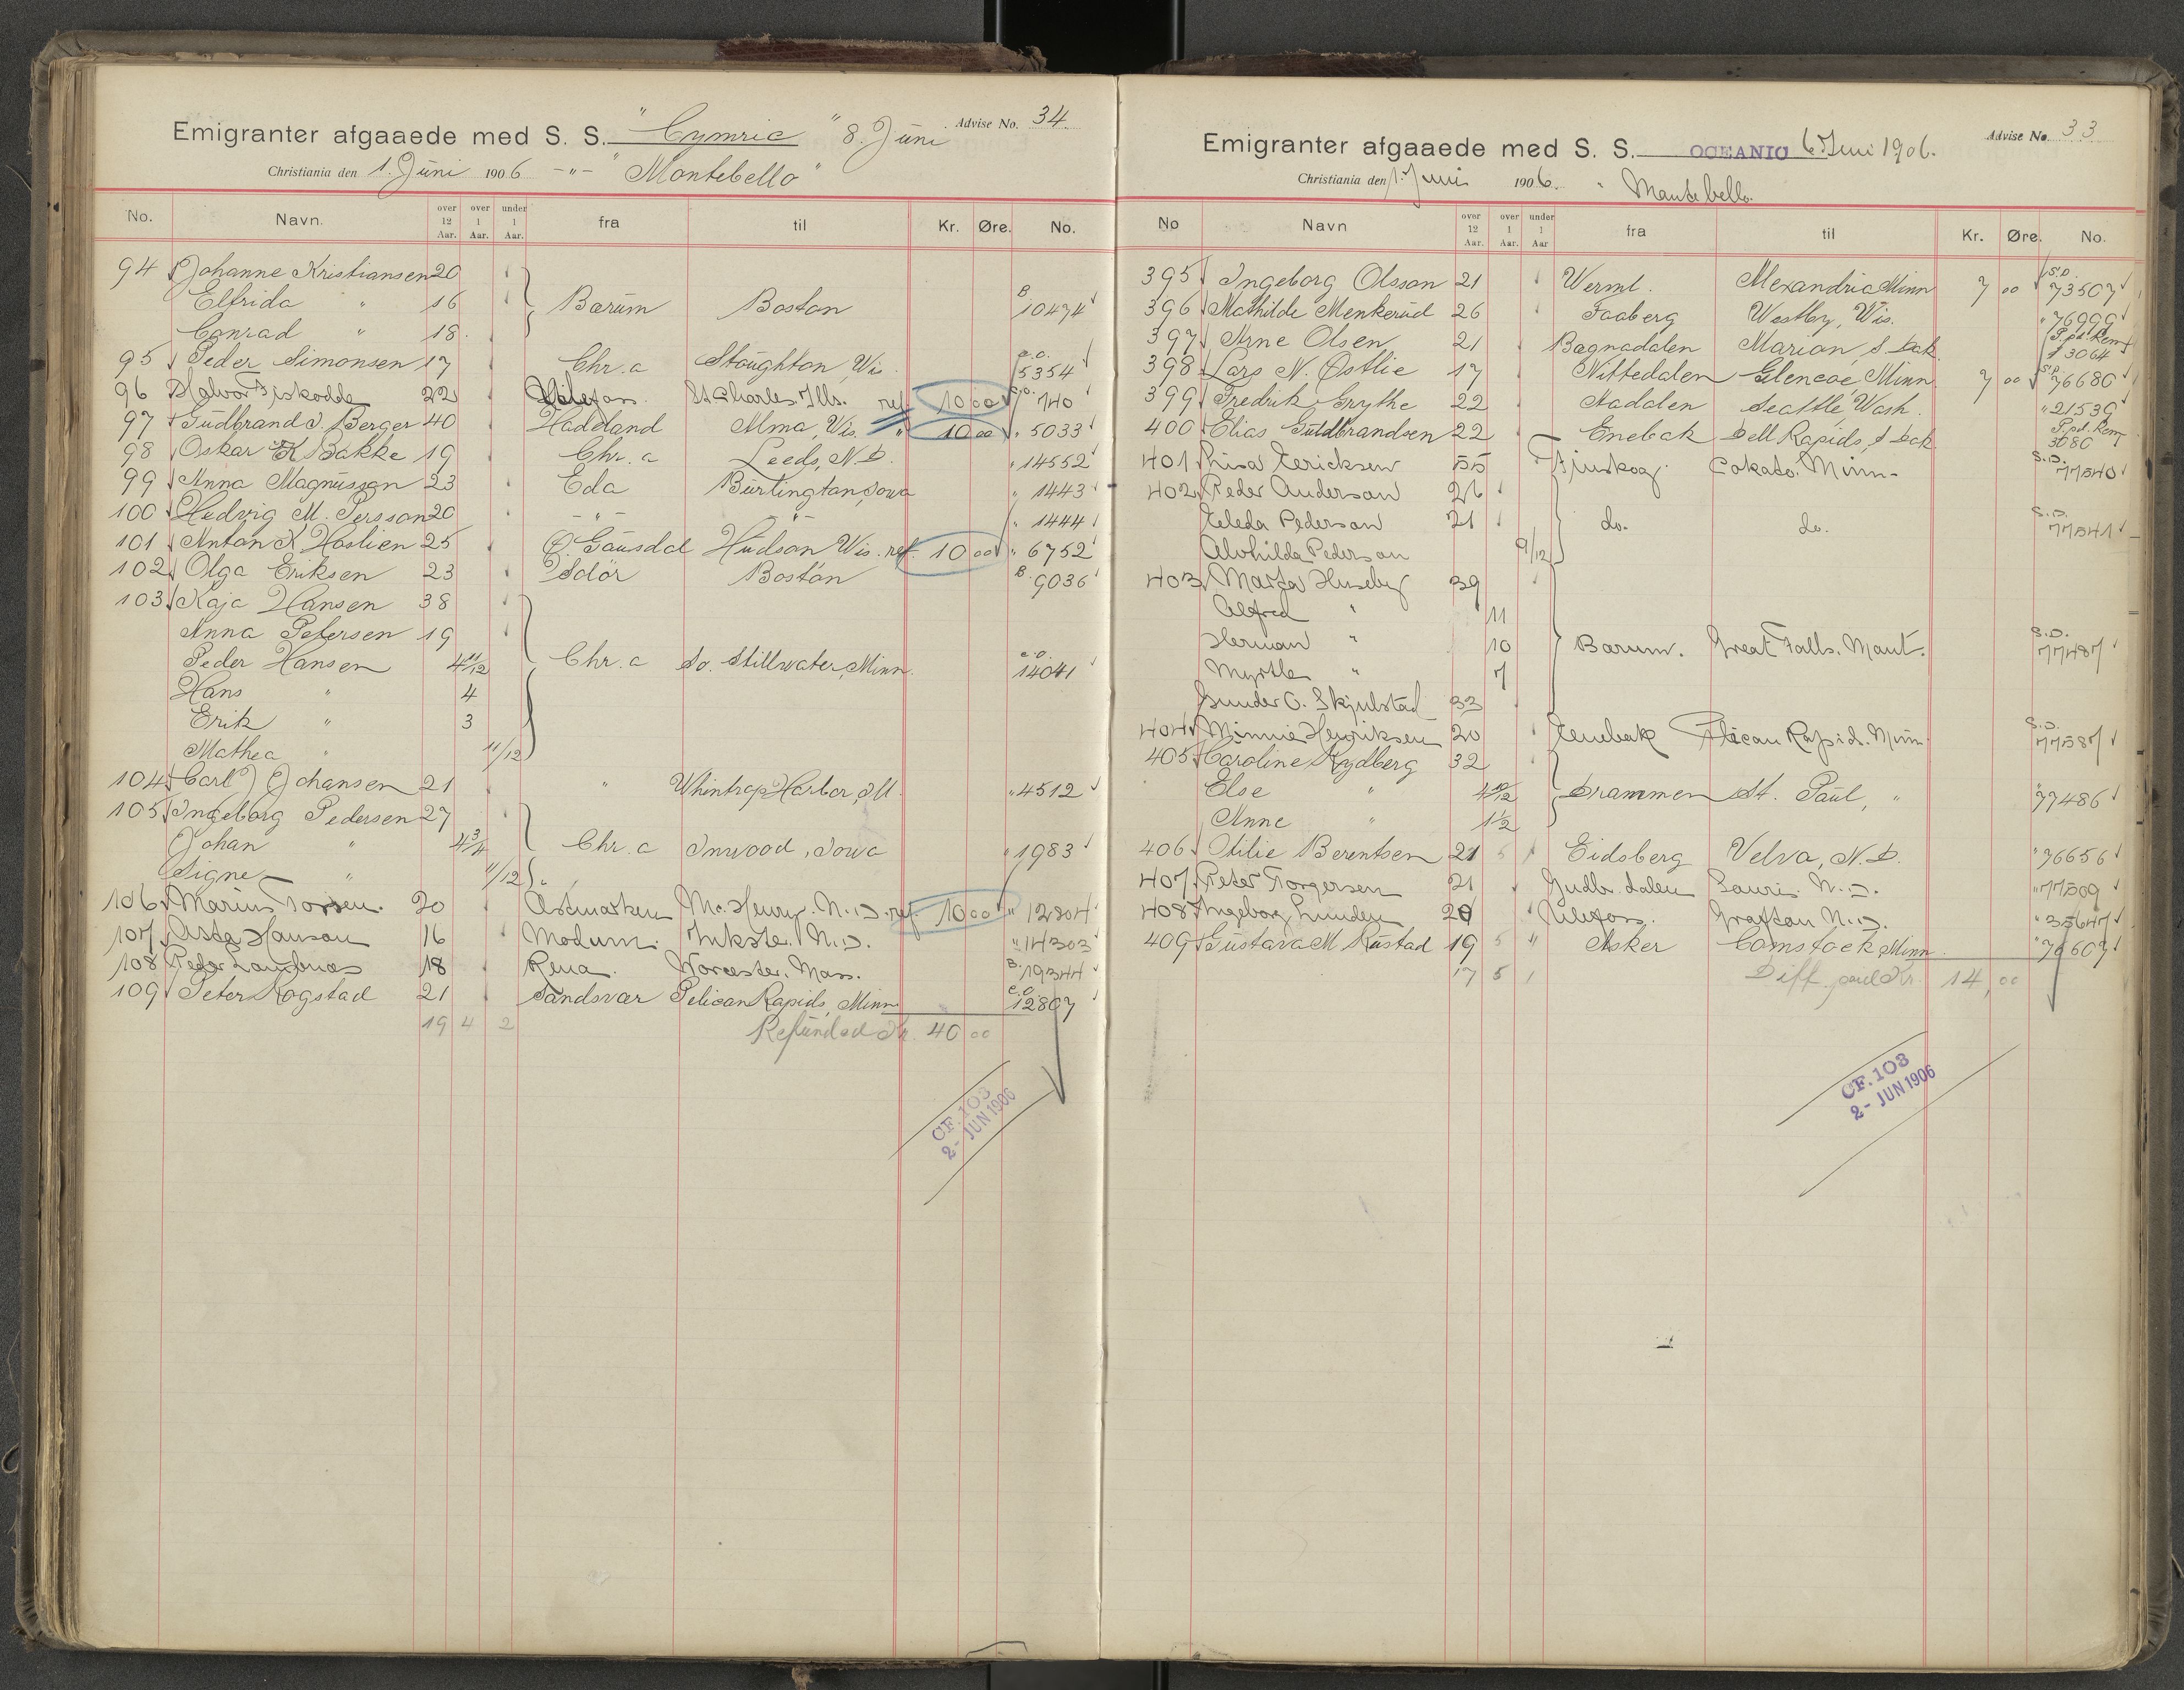 Emigranter afgaaede med S. S. "Cymric" 8. Juni Advise No. 34
Christiania den 1. Juni 1906 -"- "Montebello"
No. Navn. over 12 Aar. over 1 Aar. under 1 Aar. fra til Kr. Øre. No.
94 Johanne Kristiansen 20
Elfrida " 16 Barum Boston B 10474
Conrad " 18
95 Peder Simonsen 17 Chr.a Stoughton, Wis. c.o. 5354
96 Halvor 22 Ulefoss. St Charles. Ills. ref. 10 00 c.o. 740
97 Gudbrand J. Berger 40 Hadeland Alma, Wis. " 10 00 " 5033
98 Oskar K Bakke 19 Chr.a Leeds, N.D. " 14552
99 Anna Magnusson 23 Eda Burlington, Iowa " 1443
100 Hedvig M. Persson 20 -"- -"- " 1444
101 Anton K Haslien 25 Ø. Gausdal Hudson Wis. ref. 10 00 " 6752
102 Olga Eriksen 23 Iddør Boston B. 9036
103 Kaja Hansen 38
Anna Petersen 19
Peder Hansen 4 11/12 Chr.a So. Stillwater, Minn. c.o. 14041
Hans " 4
Erik " 3
Mathea " 11/12
104 Carl J Johansen 21 " Whintrop Harbor, Ill. " 4512
105 Ingeborg Pedersen 27
Johan " 4 3/4 Chr.a Inwood, Iowa " 1983
Signe " 11/12
106 Marius Torsen. 20 Aasmarken Mc. Henry. N.D. ref. 10 00 " 12804
107 Asta Hanson 16 Modum. Inkster. N.D. " 14303
108 Peder 18 Rena. Worcester. Mass. B. 19344
109 Peter Rogstad 21 Sandsvær Pelican Rapids, Minn c.o. 12807
19 4 2 Refunded Kr. 40 00
CF. 103
2- JUN 1906
Emigranter afgaaede med S. S. OCEANIC 6 Juni 1906. Advise No. 33
Christiania den 1. Juni 1906. " Montebello.
No Navn over 12 Aar. over 1 Aar. under 1 Aar fra til Kr. Øre. No.
395 Ingeborg Olsson 21 Werml. Alexandria Minn 7 00 S.D. 73507
396 Mathilde Menkerud 26 Faaberg Westby, Wis. " 76999
397 Arne Olsen 21 Bagnadalen Marion, S Dak. P.pd. Rem 13064
398 Lars N. Østlie 17 Nittedalen Glencoe Minn 7 00 S.D. 76680
399 Fredrik Grythe 22 Aadalen Seattle Wash. " 21539
400 Elias Guldbrandsen 22 Enebak Dell Rapids, S Dak P.pd. Rem 3080
401 Lisa Ericksen 55 Cokato. Minn. S.D. 77540
402 Peder Anderson 26
Eleda Pederson 21 do. do. S.D. 77541
Alvhilda Pederson 9/12
403 Marta Huseby 39
Alfred " 11
Herman " 10 Barum. Great Falls. Mont. S.D. 77487
Myrtle " 7
Gunder O. Skjulstad 33
404 Minnie Henriksen 20 Enebak Pelican Rapids. Minn. S.D. 77587
405 Caroline Rydberg 32
Else " 4 10/12 Drammen St. Paul, " " 77486
Anne " 1 1/2
406 Otilie Berentsen 21 Eidsberg Velva, N.D. " 76656
407 Peter Torgersen 21 Gudbr. dalen N.D. " 77509
408 Ingeborg Lunden 20 Ulefoss. Grafton N.D. " 35647
409 Gustava M Rustad 19 Asker Comstock, Minn. " 76607
17 5 1 Diff. paid Kr. 14,00
CF. 103
2- JUN 1906